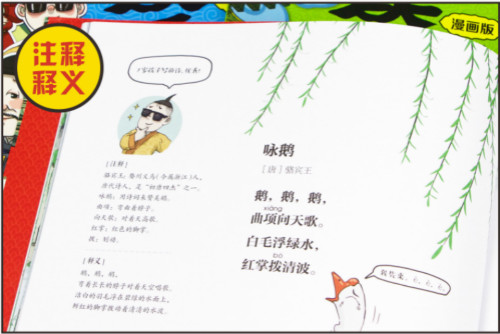 注释
释义
漫画版
咏鹅
[唐] 骆宾王
鹅，鹅，鹅，
xiàng
曲项向天歌。
白毛浮绿水，
bō
红掌拨清波。
[注释]
骆宾王：婺州义乌(今属浙江)人，
唐代诗人，是“初唐四杰”之一。
咏鹅：用诗词来赞美鹅。
曲项：弯曲着脖子。
向天歌：对着天高歌。
红掌：红色的脚掌。
拨：划动。
[释义]
鹅，鹅，鹅，
弯着长长的脖子对着天空唱歌。
洁白的羽毛浮在碧绿的水面上，
鲜红的脚掌拨动着清清的水波。